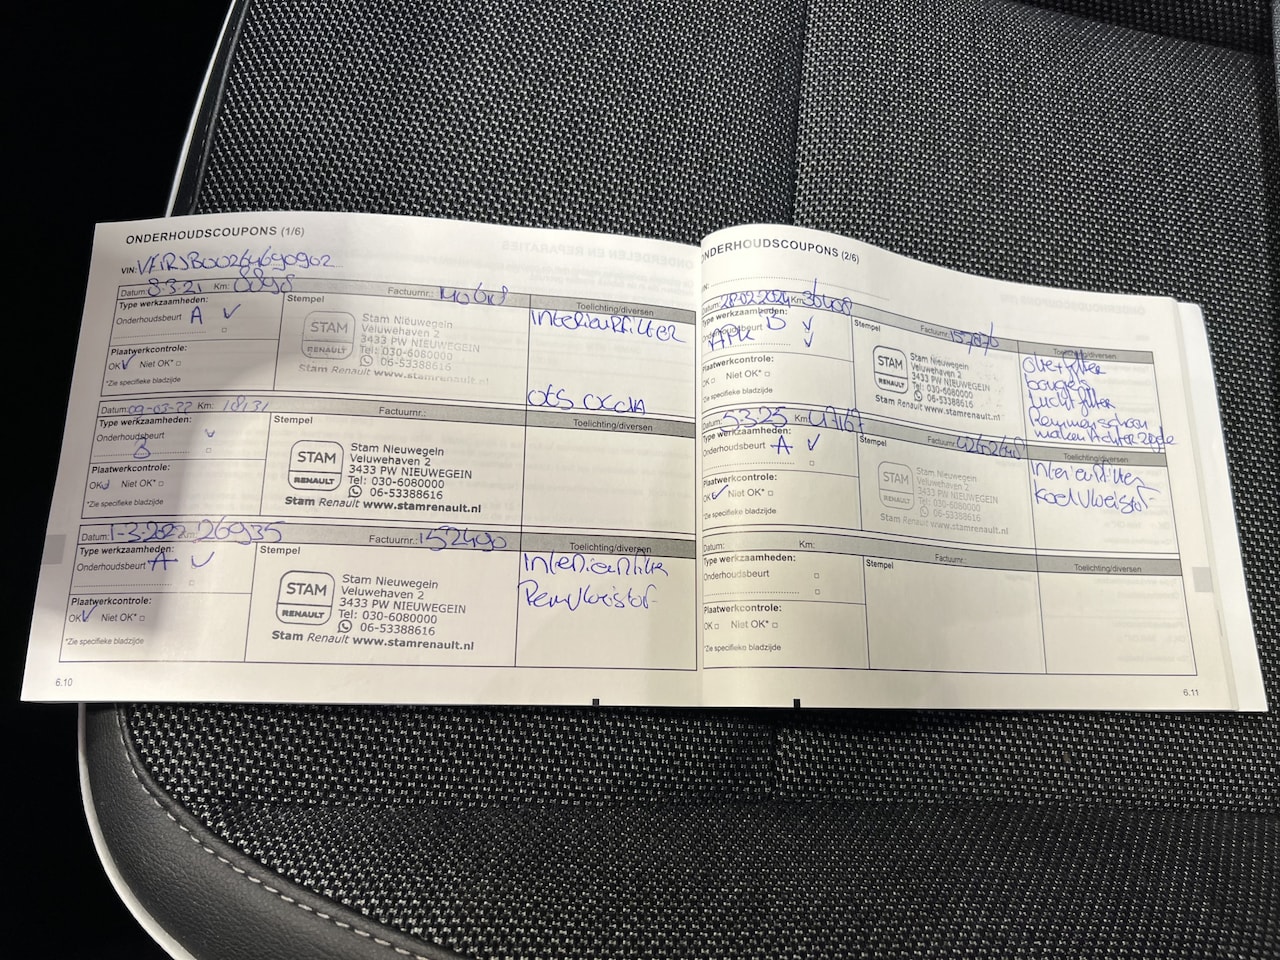 ONDERHOUDSCOUPONS (1/6)
VIN:
Datum: 8-3-21 Km: 8898 Factuurnr.: Toelichting/diversen
Type werkzaamheden: Stempel
Onderhoudsbeurt A ✓
Interieurfilter
STAM RENAULT
Stam Nieuwegein
Veluwehaven 2
3433 PW NIEUWEGEIN
Tel: 030-6080000
06-53388616
Stam Renault www.stamrenault.nl
Plaatwerkcontrole:
OK ✓ Niet OK* □
*Zie specifieke bladzijde
Datum: 09-03-22 Km: 18131 Factuurnr.: Toelichting/diversen
Type werkzaamheden: Stempel
Onderhoudsbeurt ✓
STAM RENAULT
Stam Nieuwegein
Veluwehaven 2
3433 PW NIEUWEGEIN
Tel: 030-6080000
06-53388616
Stam Renault www.stamrenault.nl
Plaatwerkcontrole:
OK Niet OK* □
*Zie specifieke bladzijde
Datum: 1-3-2022 Km: 26935 Factuurnr.: 152490 Toelichting/diversen
Type werkzaamheden: Stempel
Onderhoudsbeurt A ✓
Interieurfilter
Remvloeistof
STAM RENAULT
Stam Nieuwegein
Veluwehaven 2
3433 PW NIEUWEGEIN
Tel: 030-6080000
06-53388616
Stam Renault www.stamrenault.nl
Plaatwerkcontrole:
OK ✓ Niet OK* □
*Zie specifieke bladzijde
6.10
ONDERHOUDSCOUPONS (2/6)
Datum: 28-02-2024 Km: Factuurnr. Toelichting/diversen
Type werkzaamheden: Stempel
Onderhoudsbeurt B ✓
APK ✓
oliefilter
bougies
Luchtfilter
Remmen schoon
maken Achterzijde
STAM RENAULT
Stam Nieuwegein
Veluwehaven 2
3433 PW NIEUWEGEIN
Tel: 030-6080000
06-53388616
Stam Renault www.stamrenault.nl
Plaatwerkcontrole:
OK □ Niet OK* □
*Zie specifieke bladzijde
Datum: 5-3-25 Km: 47167 Factuurnr. Toelichting/diversen
Type werkzaamheden: Stempel
Onderhoudsbeurt A ✓
Interieurfilter
Koelvloeistof
STAM RENAULT
Stam Nieuwegein
Veluwehaven 2
3433 PW NIEUWEGEIN
Tel: 030-6080000
06-53388616
Stam Renault www.stamrenault.nl
Plaatwerkcontrole:
OK ✓ Niet OK* □
*Zie specifieke bladzijde
Datum: Km: Factuurnr.: Toelichting/diversen
Type werkzaamheden: Stempel
Onderhoudsbeurt □
Plaatwerkcontrole:
OK □ Niet OK* □
*Zie specifieke bladzijde
6.11